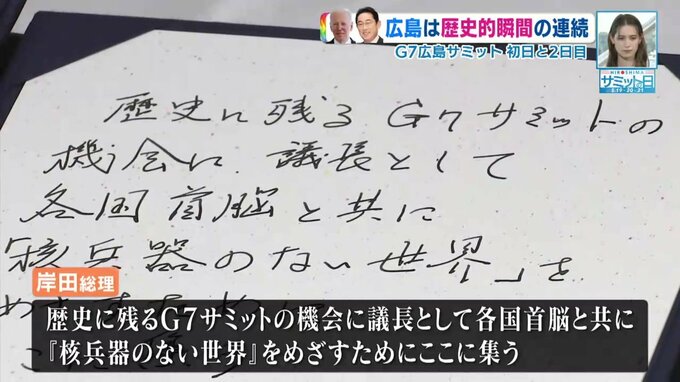 広島は歴史的瞬間の連続
G7広島サミット 初日と2日目
HIROSHIMA
サミットの日
5.19・20・21
歴史に残るG7サミットの
機会に議長として
各国首脳と共に
「核兵器のない世界」を
めざすために
岸田総理
歴史に残るG7サミットの機会に議長として各国首脳と共に
『核兵器のない世界』をめざすためにここに集う